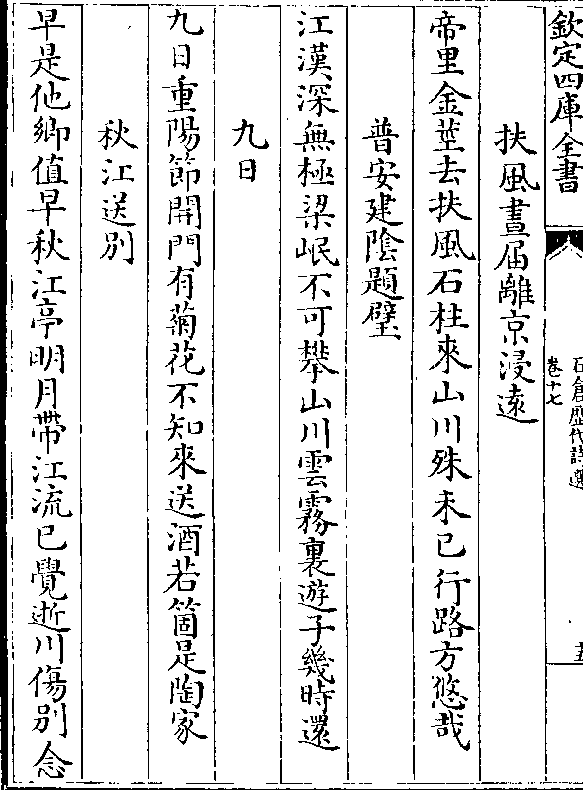 欽定四庫全書
石倉歷代詩選
卷十七
扶風晝屆離京浸遠
帝里金莖去扶風石柱來山川殊未已行路方悠哉
普安建陰題壁
江漢深無極梁岷不可攀山川雲霧裏遊子幾時還
九日
九日重陽節開門有菊花不知來送酒若箇是陶家
秋江送別
早是他鄉值早秋江亭明月帶江流已覺逝川傷別念